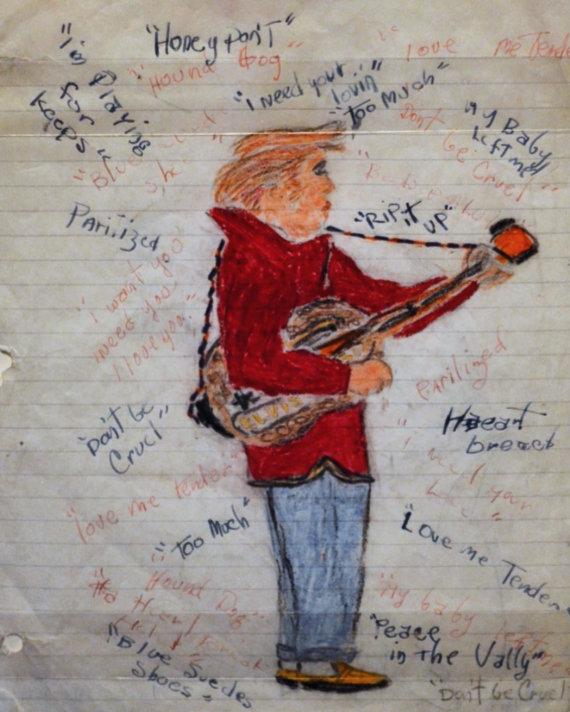 "Honey Don't"
"I'm Playing
for
Keeps"
"Hound Dog"
"love me Tende
"I need your
lovin"
"Too Much"
Don't
be Cruel"
"My Baby
Left me"
"Blue
Parilized
"RiP it UP"
"I want you
I need you
I love you"
Parilized
"Don't be
Cruel"
Heart
breack
ELVIS
your
"love me tender"
"Too Much"
"Love me Tender
Hound Dog"
"My baby left me
"Peace
in The Vally"
"Blue Suedes
Shoes"
"Don't be Cruel"